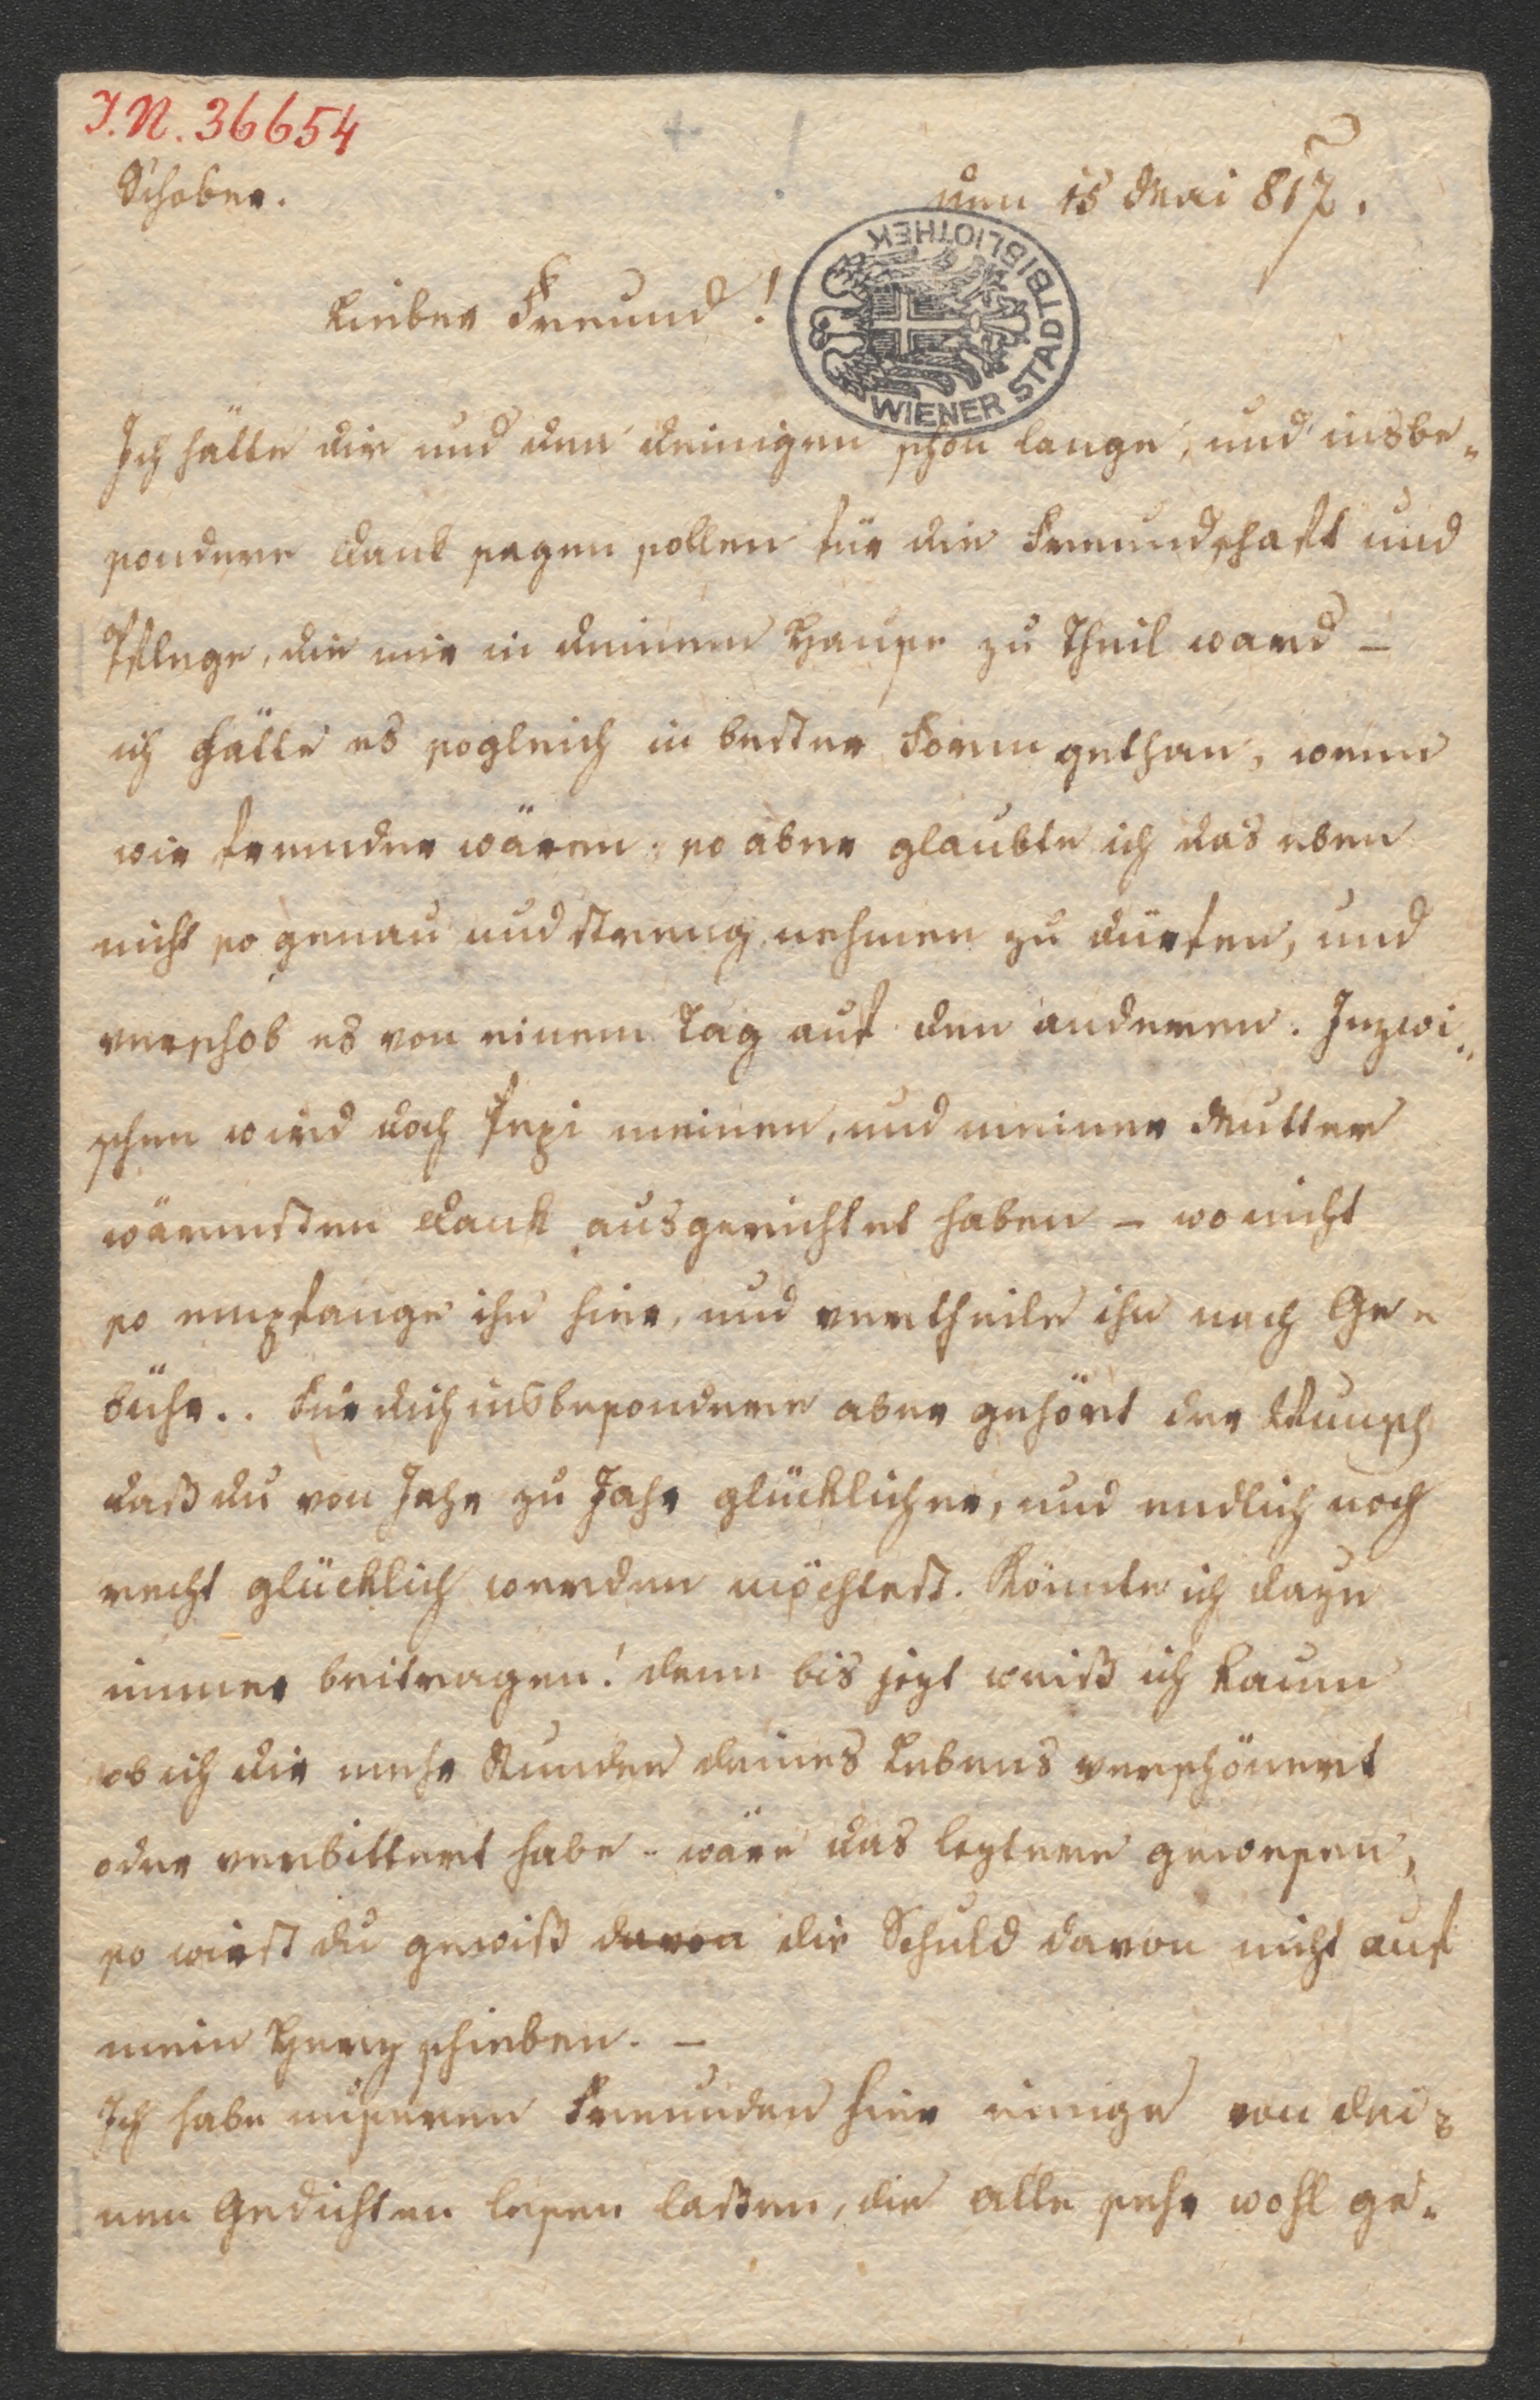 I.N. 36654
Schober.
den 15 Mai 817.
Lieber Freund!
WIENER STADTBIBLIOTHEK
Ich hätte dir und den deinigen schon lange, und insbe-
sondere Dank sagen sollen für die Freundschaft und
Pflege, die mir in deinem Hause zu Theil ward –
ich hätte es sogleich in bester Form gethan, wenn
wir fremder wären; so aber glaubte ich das eben
nicht so genau und streng nehmen zu dürfen, und
verschob es von einem Tag auf den anderen. Inzwi-
schen wird doch Pepi meinen, und meiner Mutter
wärmsten Dank ausgerichtet haben – wo nicht
so empfange ihn hier, und vertheile ihn nach Ge-
bühr.. Für dich insbesondere aber gehört der Wunsch
daß du von Jahr zu Jahr glücklicher, und endlich noch
recht glücklich werden möchtest. Könnte ich dazu
immer beitragen! denn bis jezt weiß ich kaum
ob ich dir mehr Stunden deines Lebens verschönert
oder verbittert habe – wäre das leztere gewesen,
so wirst du gewiß davon die Schuld davon nicht auf
mein Herz schieben. –
Ich habe unseren Freunden hier einige von dei-
nen Gedichten lesen laßen, die alle sehr wohl ge-